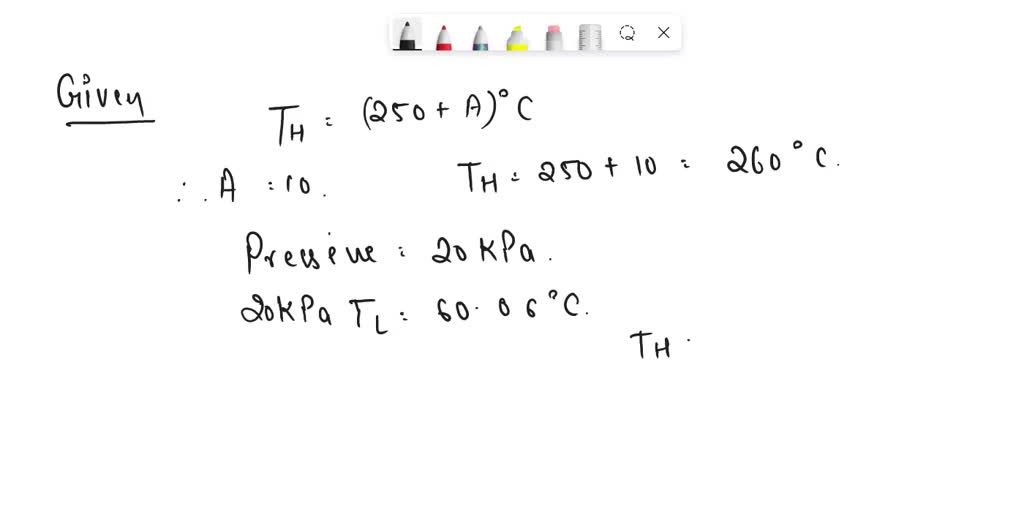 Given
T_H = (250 + A)°C
∴ A = 10. T_H = 250 + 10 = 260°C.
Pressure = 20 kPa.
20kPa T_L = 60.06°C.
T_H